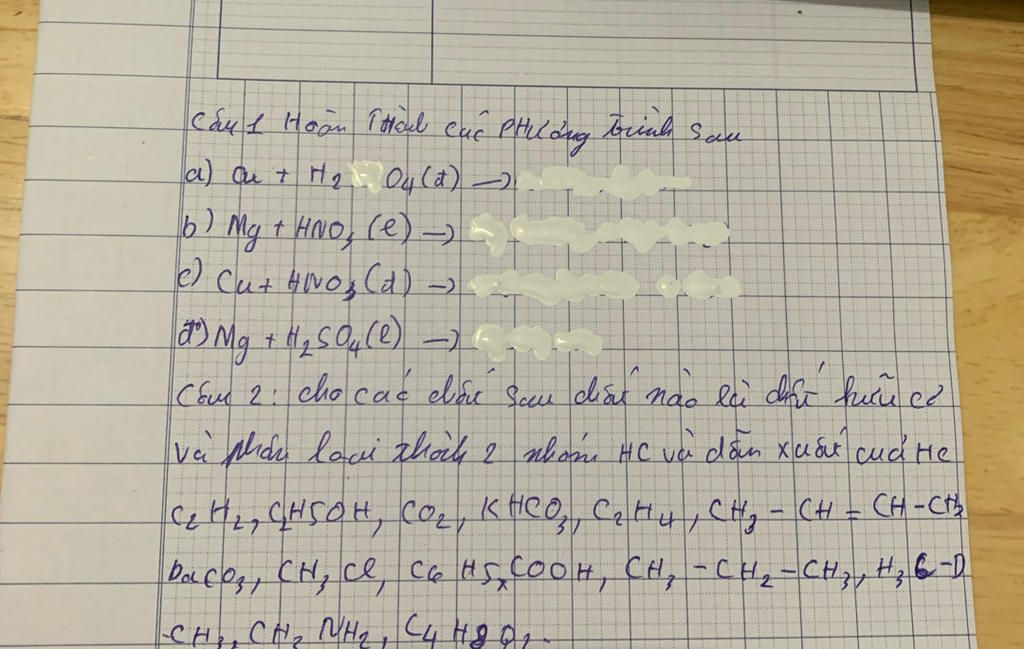 Câu 1 Hoàn Thành các PHương trình sau
a) Cu + H2 O4(đ) →
b) Mg + HNO3 (l) →
c) Cu + HNO3 (đ) →
d) Mg + H2SO4(l) →
Câu 2: cho các chất sau chất nào là chất hữu cơ
và phân loại thành 2 nhóm HC và dẫn xuất của HC
C2H2, C2H5OH, CO2, KHCO3, C2H4, CH3 - CH = CH - CH3
BaCO3, CH3Cl, C6H5COOH, CH3 - CH2 - CH3, H3C-O
-CH3, CH3NH2, C4H8O2.